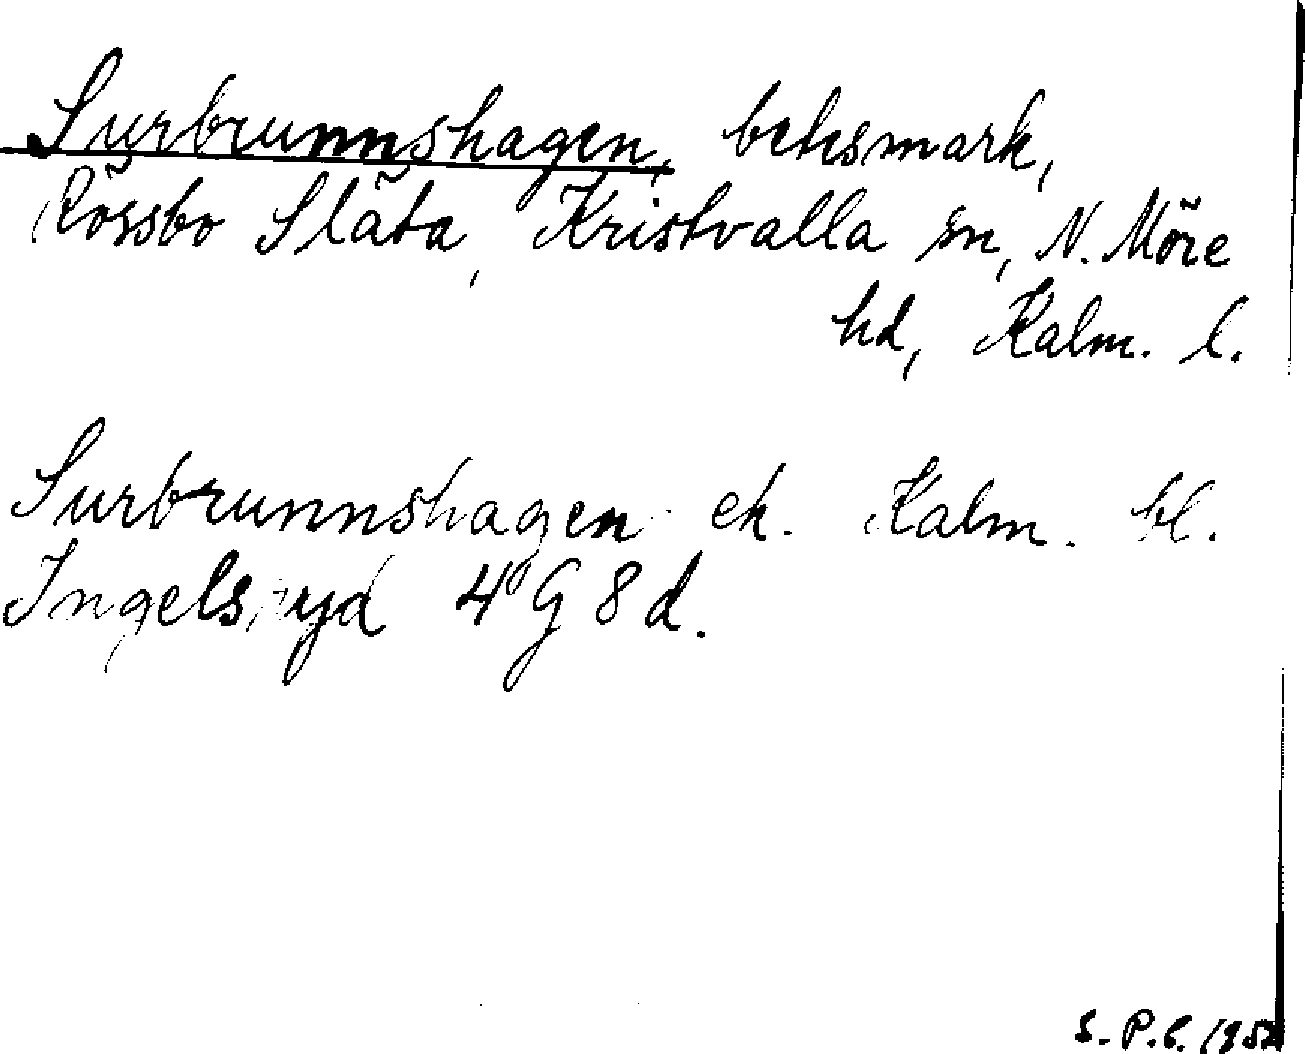 Surbrunnshagen, betesmark,
Rössbo Släta, Kristvalla sn, N. Möre
hd, Kalm. l.
Surbrunnshagen ek. Kalm. bl.
Ingelsryd 4 G 8 d.
S.P.C. 1952